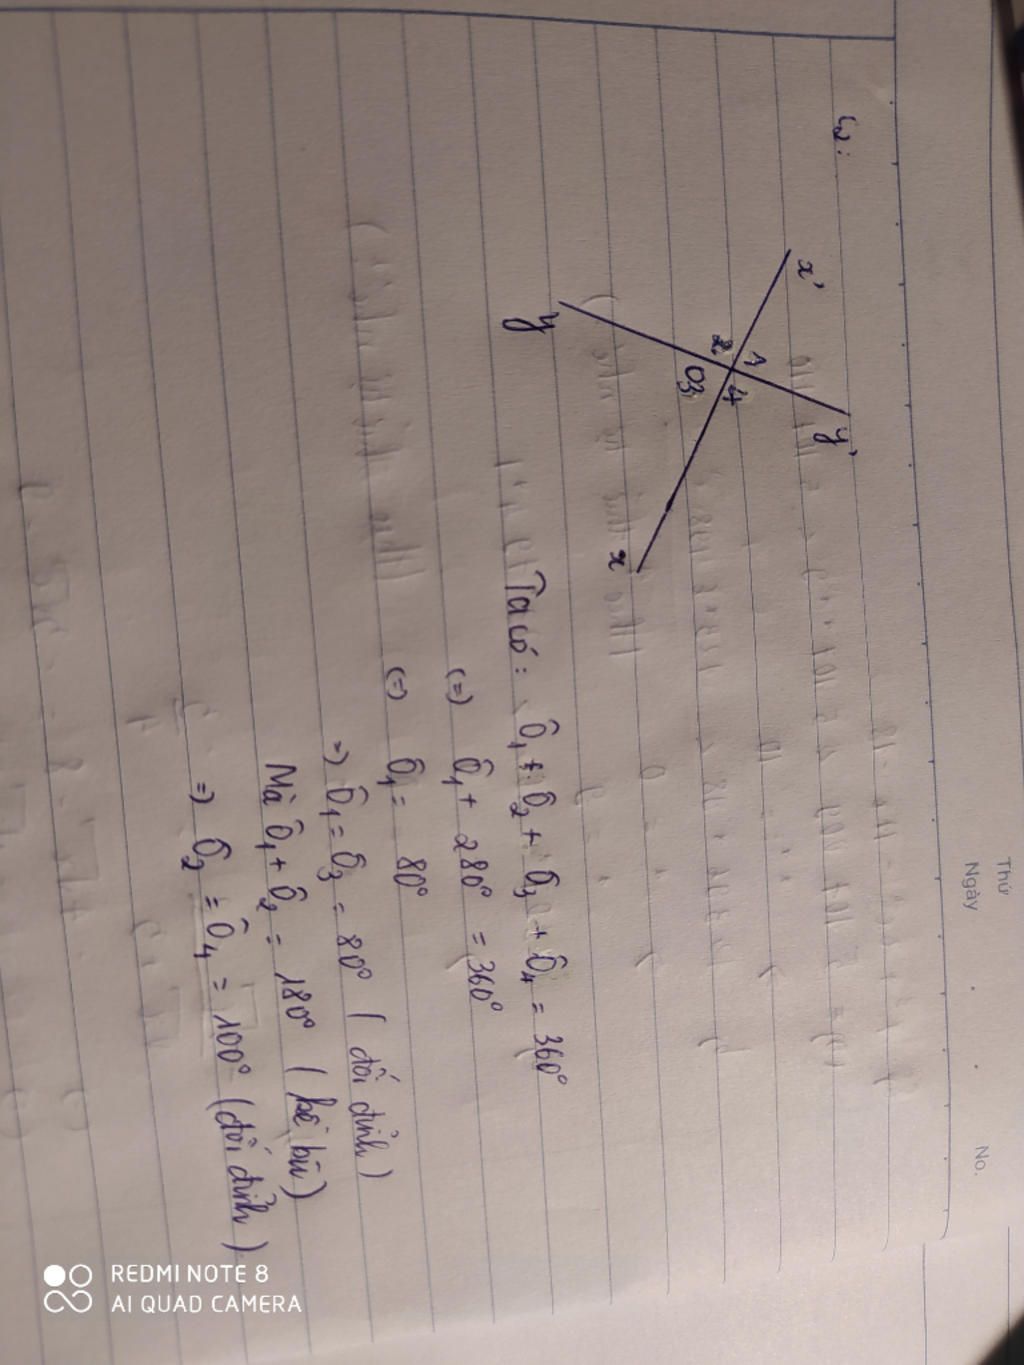 Thứ
Ngày
No.
3:
x'
y'
1
2
4
O3
y
x
Ta có: Ô1 + Ô2 + Ô3 + Ô4 = 360°
(=) Ô1 + 280° = 360°
(=) Ô1 = 80°
=) Ô1 = Ô3 = 80° (đối đỉnh)
Mà Ô1 + Ô2 = 180° (kề bù)
=) Ô2 = Ô4 = 100° (đối đỉnh)
REDMI NOTE 8
AI QUAD CAMERA